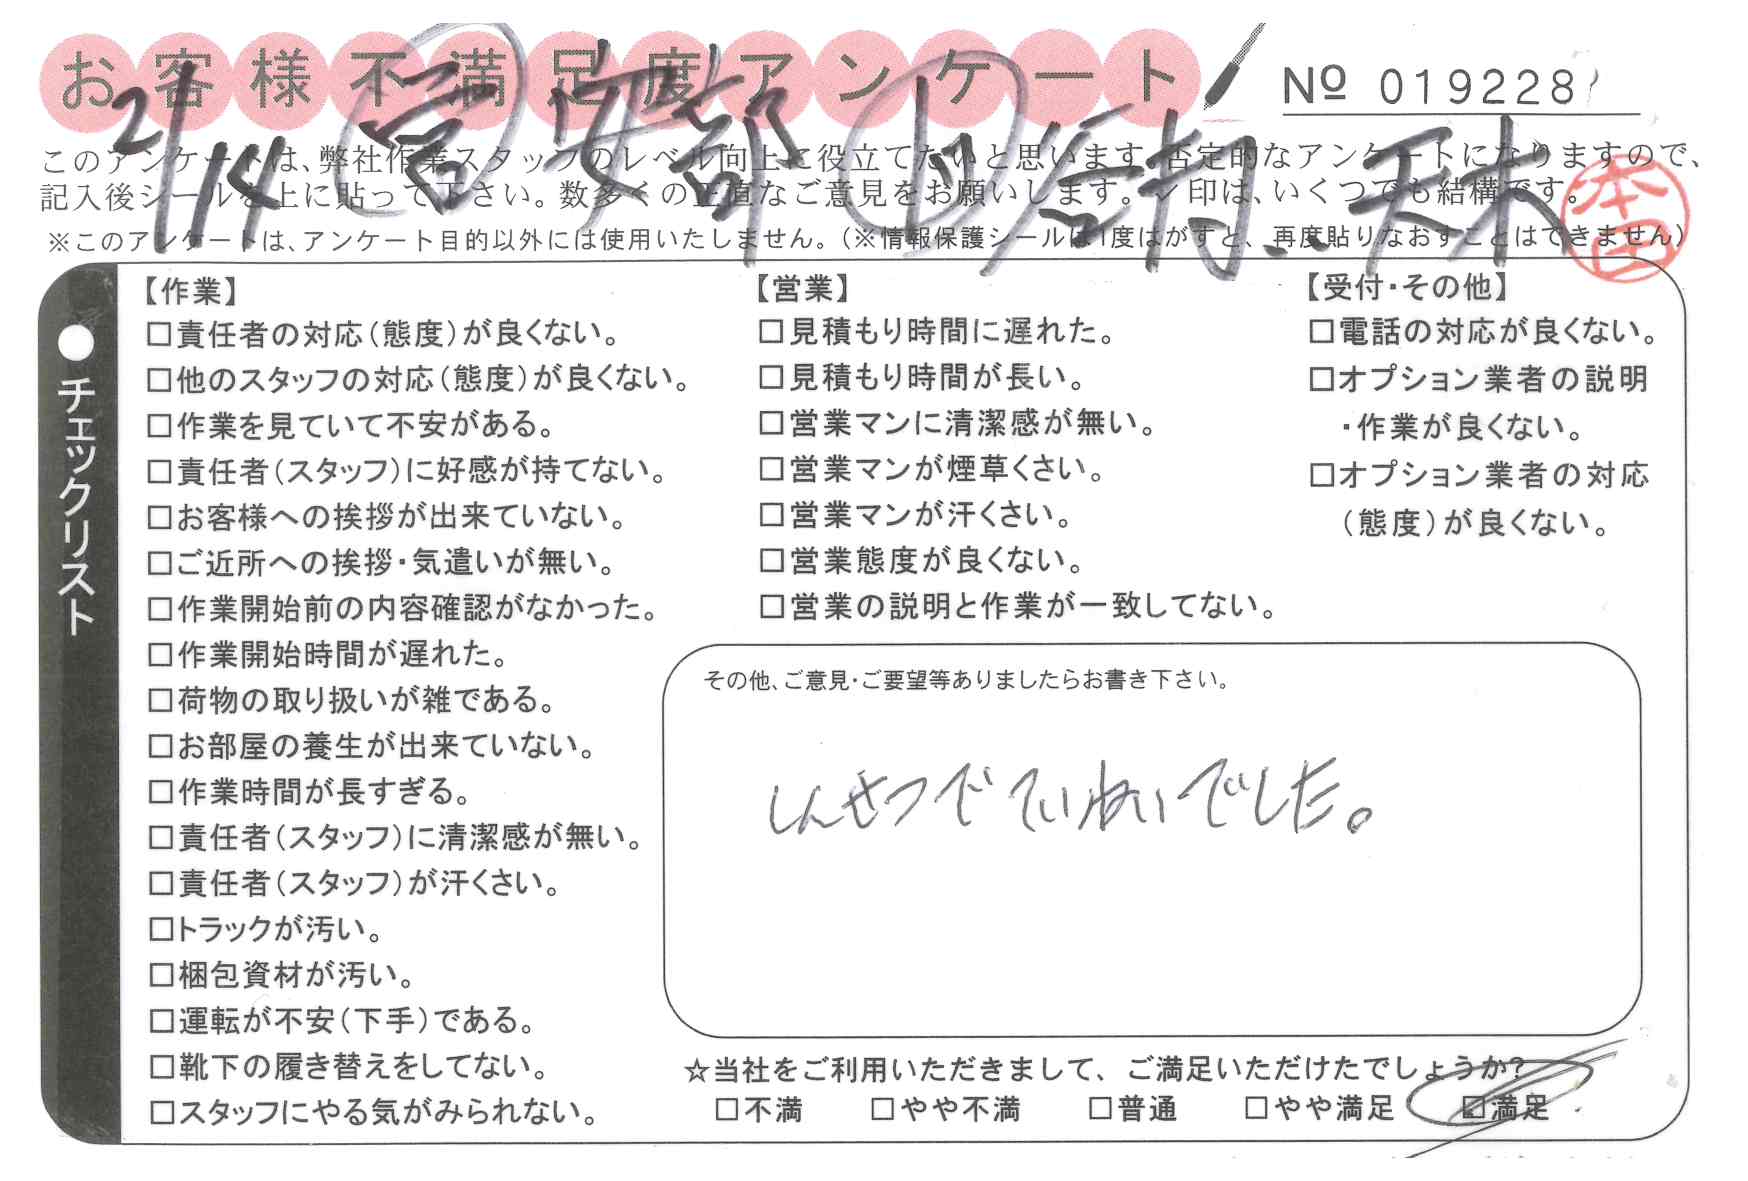 お客様不満足度アンケート
№ 019228
2/14 営 安部 作 岩村、天木
本田
このアンケートは、弊社作業スタッフのレベル向上に役立てたいと思います。否定的なアンケートになりますので、
記入後シールを上に貼って下さい。数多くの正直なご意見をお願いします。✓印は、いくつでも結構です。
※このアンケートは、アンケート目的以外には使用いたしません。(※情報保護シールは1度はがすと、再度貼りなおすことはできません)
●チェックリスト
【作業】
□責任者の対応(態度)が良くない。
□他のスタッフの対応(態度)が良くない。
□作業を見ていて不安がある。
□責任者(スタッフ)に好感が持てない。
□お客様への挨拶が出来ていない。
□ご近所への挨拶・気遣いが無い。
□作業開始前の内容確認がなかった。
□作業開始時間が遅れた。
□荷物の取り扱いが雑である。
□お部屋の養生が出来ていない。
□作業時間が長すぎる。
□責任者(スタッフ)に清潔感が無い。
□責任者(スタッフ)が汗くさい。
□トラックが汚い。
□梱包資材が汚い。
□運転が不安(下手)である。
□靴下の履き替えをしてない。
□スタッフにやる気がみられない。
【営業】
□見積もり時間に遅れた。
□見積もり時間が長い。
□営業マンに清潔感が無い。
□営業マンが煙草くさい。
□営業マンが汗くさい。
□営業態度が良くない。
□営業の説明と作業が一致してない。
【受付・その他】
□電話の対応が良くない。
□オプション業者の説明
・作業が良くない。
□オプション業者の対応
(態度)が良くない。
その他、ご意見・ご要望等ありましたらお書き下さい。
しんせつでていねいでした。
☆当社をご利用いただきまして、ご満足いただけたでしょうか?
□不満 □やや不満 □普通 □やや満足 ☑満足